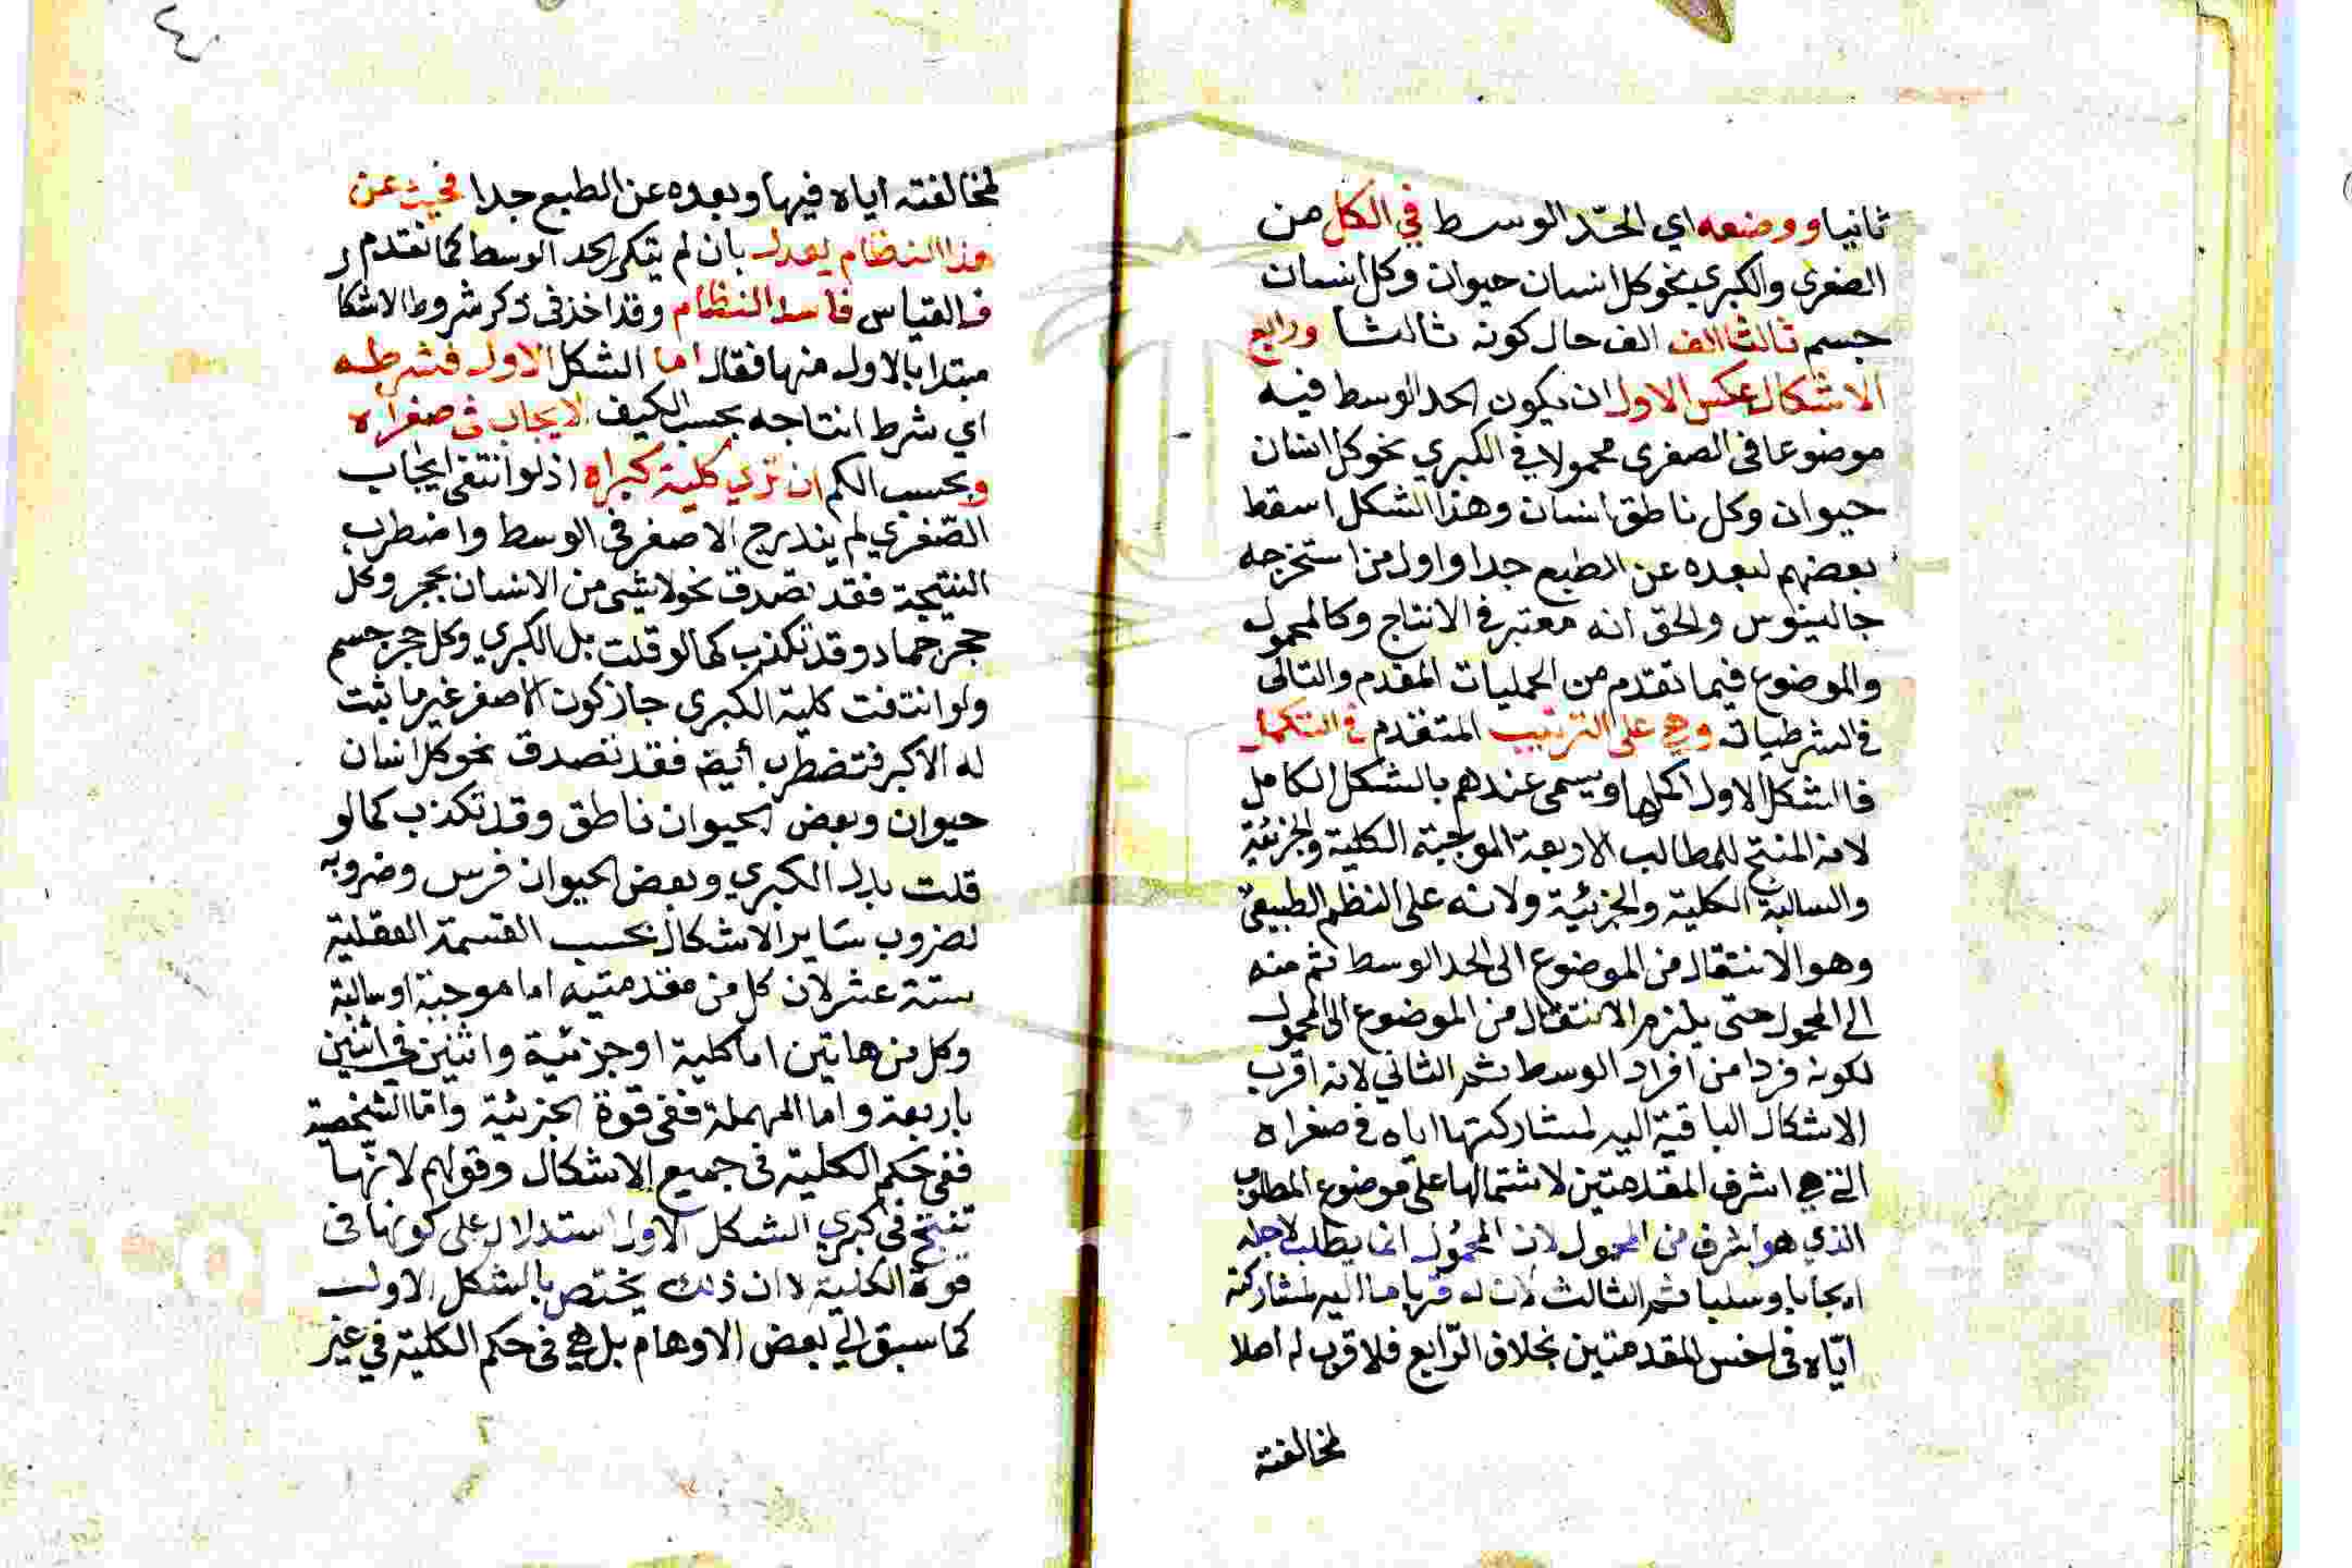 ثانيا ووضعه اي الحدّ الوسط في الكل من
الصغرى والكبرى نحو كل انسان حيوان وكل انسان
جسم ثالثا الف الف حال كونه ثالثا ورابع
الاشكال عكس الاول ان يكون الحد الوسط فيه
موضوعا في الصغرى محمولا في الكبري نحو كل انسان
حيوان وكل ناطق انسان وهذا الشكل اسقط
بعضهم لبعده عن الطبع جدا واول من استخرجه
جالينوس والحق انه معتبر في الانتاج وكالمحمول
والموضوع فيما تقدم من الحمليات المقدم والتالى
في الشرطيات وهي على الترتيب المتقدم في التكمل
فالشكل الاول اكملها ويسمى عندهم بالشكل الكامل
لانه المنتج للمطالب الاربعة الموجبة الكلية والجزئية
والسالبة الكلية والجزئية ولانه على النظم الطبيعي
وهو الانتقال من الموضوع الى الحد الوسط ثم منه
الى المحمول حتى يلزم الانتقال من الموضوع الى المحمول
لكونه فردا من افراد الوسط ثم الثاني لانه اقرب
الاشكال الباقية اليه لمشاركتها اياه في صغراه
التي هي اشرف المقدمتين لاشتمالها على موضوع المطلوب
الذي هو اشرف من المحمول لان المحمول انما يطلب لاجله
ايجابا وسلبا ثم الثالث لان له قربا ما اليه لمشاركته
ايّاه في اخس المقدمتين بخلاف الرّابع فلا قرب له اصلا
لمخالفته
لمخالفته اياه فيها وبعده عن الطبع جدا فحيث عن
هذا النظام يعدل بان لم يتكرر الحد الوسط كما تقدم
فالقياس فاسد النظام وقد اخذ في ذكر شروط الاشكا
مبتدا بالاول منها فقال اما الشكل الاول فشرطه
اي شرط انتاجه بحسب الكيف الايجاب في صغراه
وبحسب الكم ان ترى كلية كبراه اذ لو انتفى ايجاب
الصّغري لم يندرج الاصغر في الوسط واضطرب
النتيجة فقد تصدق نحو لا شيء من الانسان بحجر وكل
حجر جماد وقد تكذب كما لو قلت بدل الكبري وكل حجر جسم
ولو انتفت كلية الكبرى جاز كون الاصغر غير ما ثبت
له الاكبر فتضطرب أيضا فقد تصدق نحو كل انسان
حيوان وبعض الحيوان ناطق وقد تكذب كما لو
قلت بدل الكبري وبعض الحيوان فرس وضروبه
لضروب سَاير الاشكال بحسب القسمة العقلية
ستة عشر لان كل من مقدمتيه اما موجبة او سالبة
وكل من هاتين اما كلية او جزئية واثنين في اثنين
باربعة واما المهملة ففي قوة الجزئية وامّا الشخصية
ففي حكم الكلية في جميع الاشكال وقولهم لانّها
تنتج في كبري الشكل الاول استدلال على كونها في
قوة الكلية لا ان ذلك يختص بالشكل الاول
كما سبق الي بعض الاوهام بل هي في حكم الكلية في غير